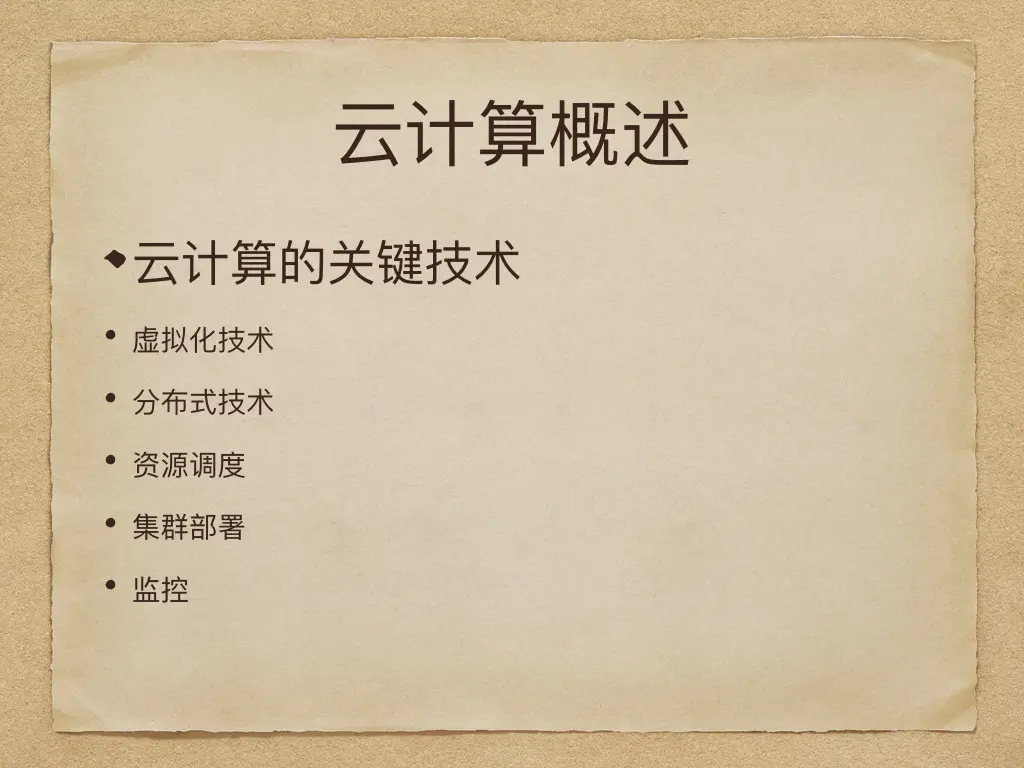 云计算概述
云计算的关键技术
虚拟化技术
分布式技术
资源调度
集群部署
监控